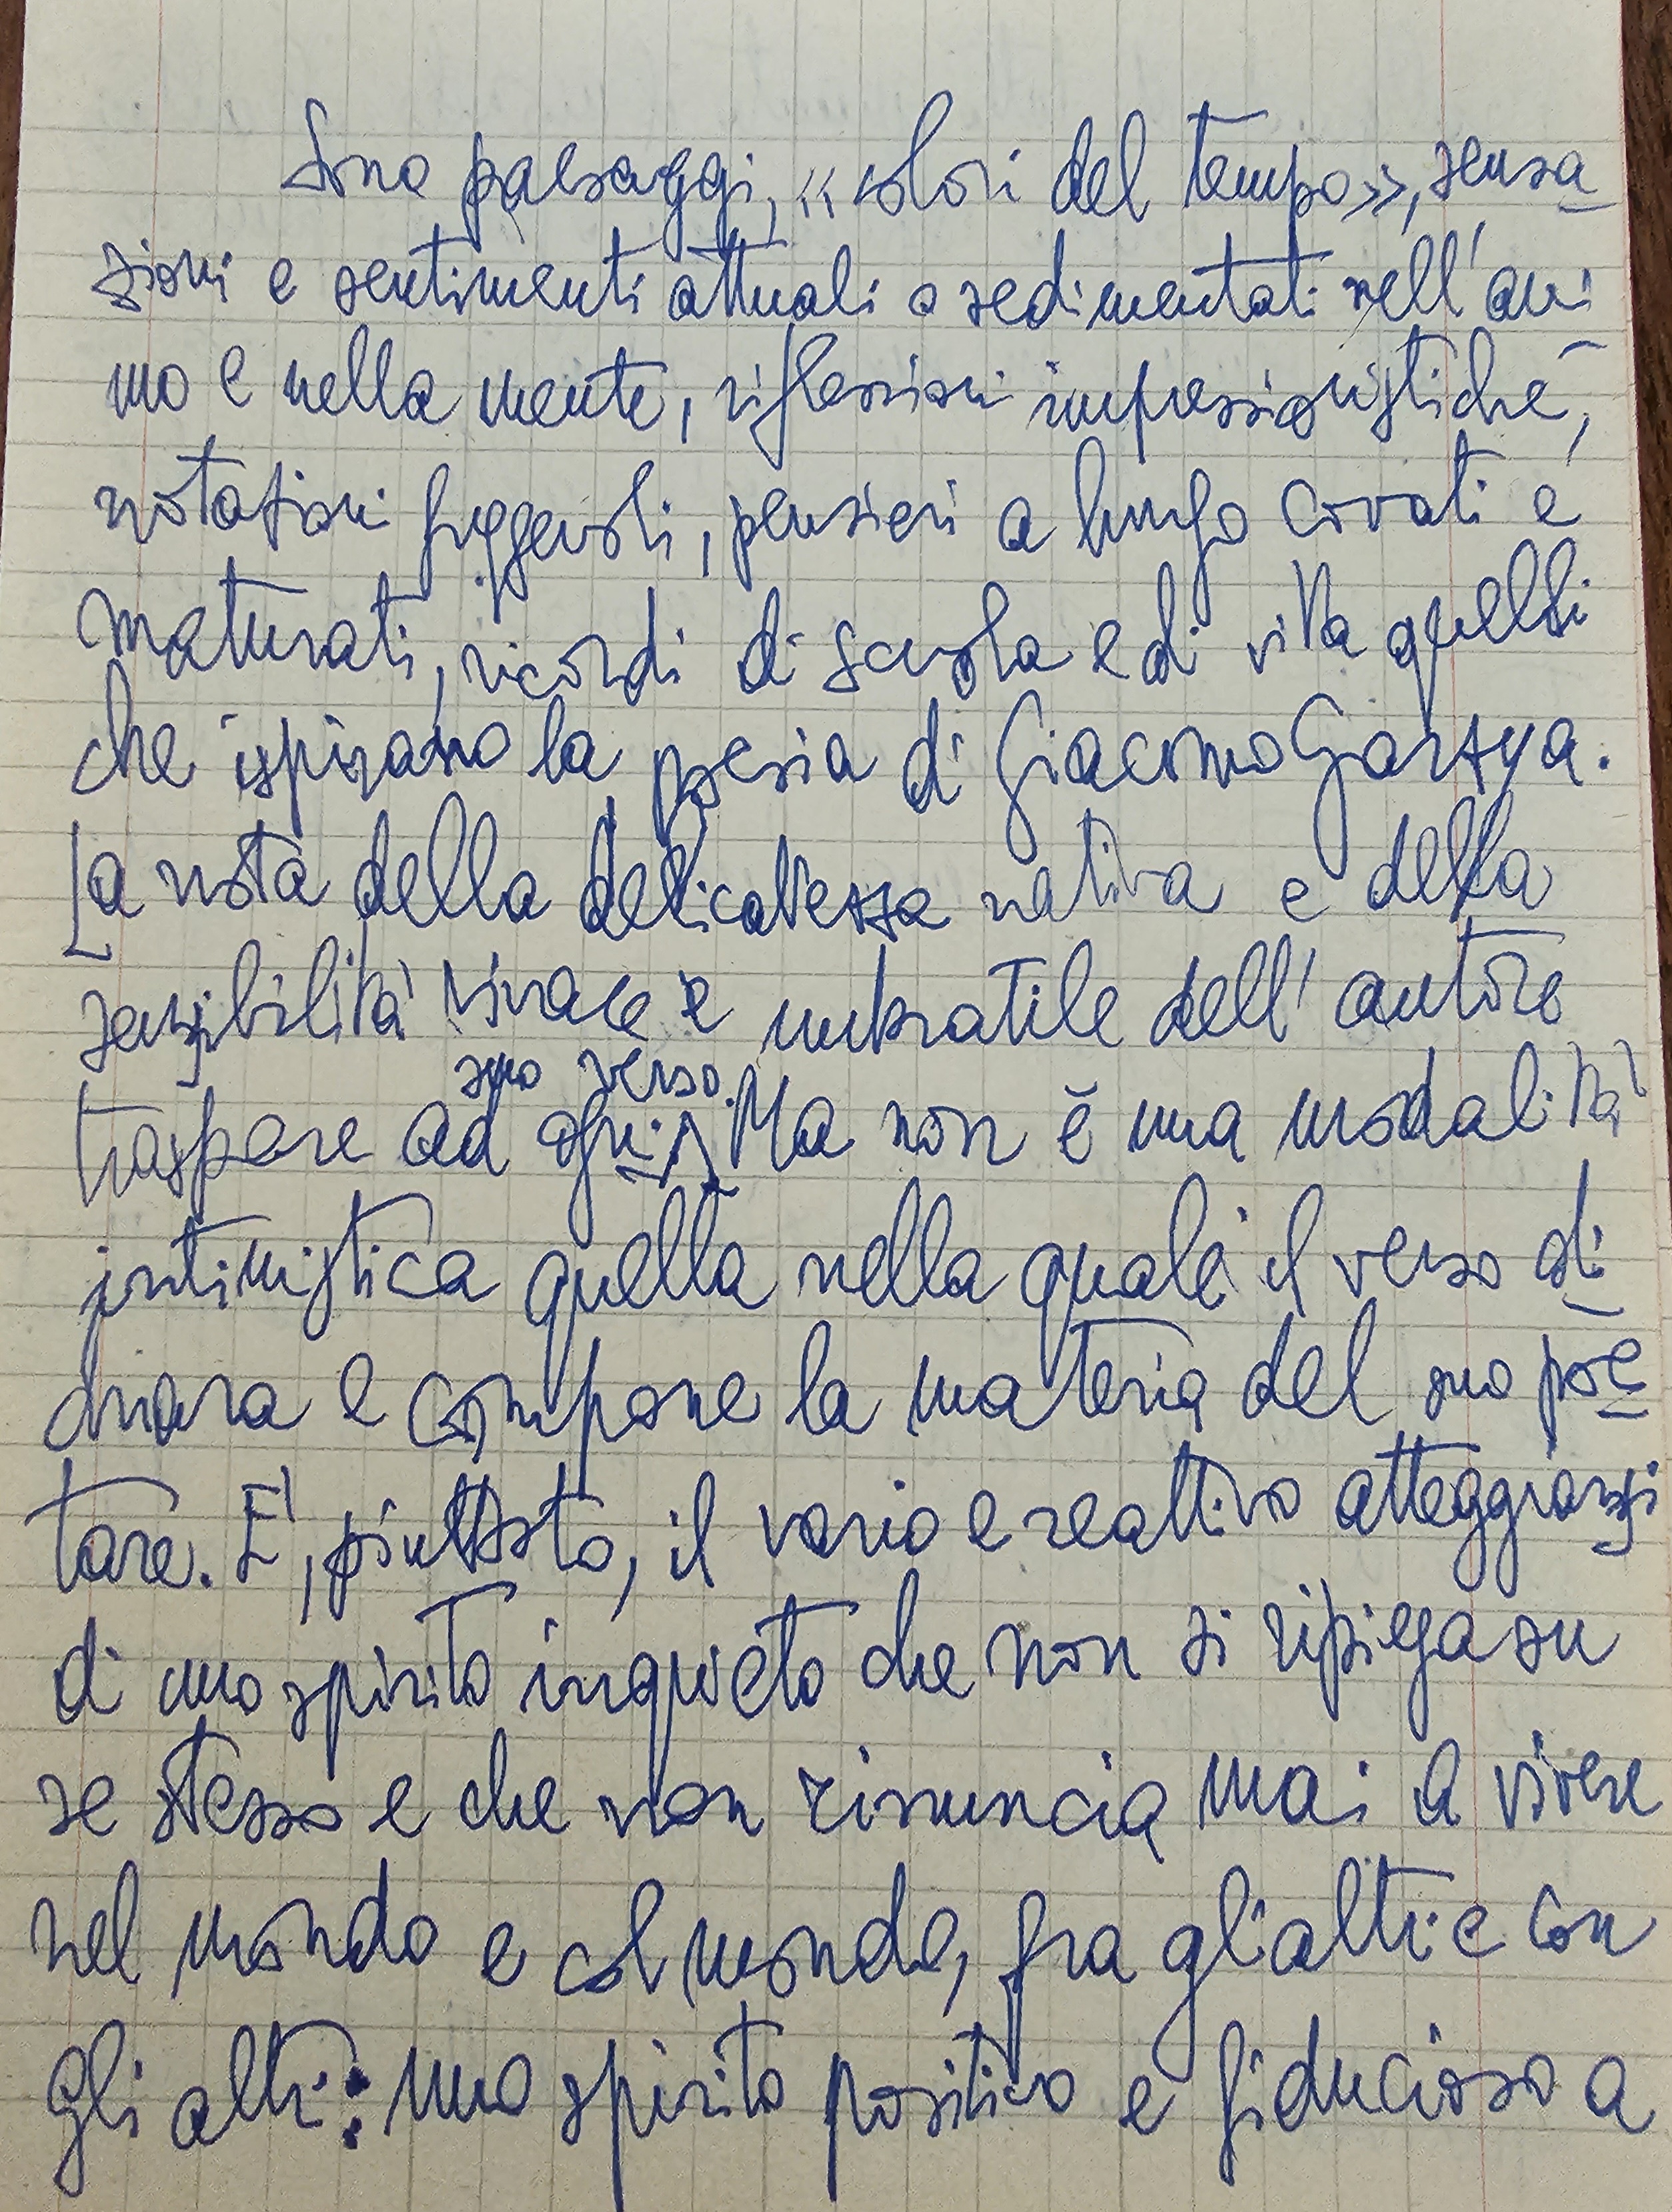 Sono paesaggi, «colori del tempo», sensa
zioni e sentimenti attuali o sedimentati nell'ani
mo e nella mente, riflessioni impressionistiche,
notazioni fuggevoli, pensieri a lungo covati e
maturati, ricordi di scuola e di vita quelli
che ispirano la poesia di Giacomo Garzya.
La nota della delicatezza nativa e della
sensibilità vivace e umbratile dell'autore
suo verso.
traspare ad ogni Ma non è una modalità
intimistica quella nella quale il verso di
chiara e compone la materia del suo poe
tare. E', piuttosto, il vario e reattivo atteggiarsi
di uno spirito inquieto che non si ripiega su
se stesso e che non rinuncia mai a vivere
nel mondo e col mondo, fra gli altri e con
gli altri: uno spirito positivo e fiducioso a